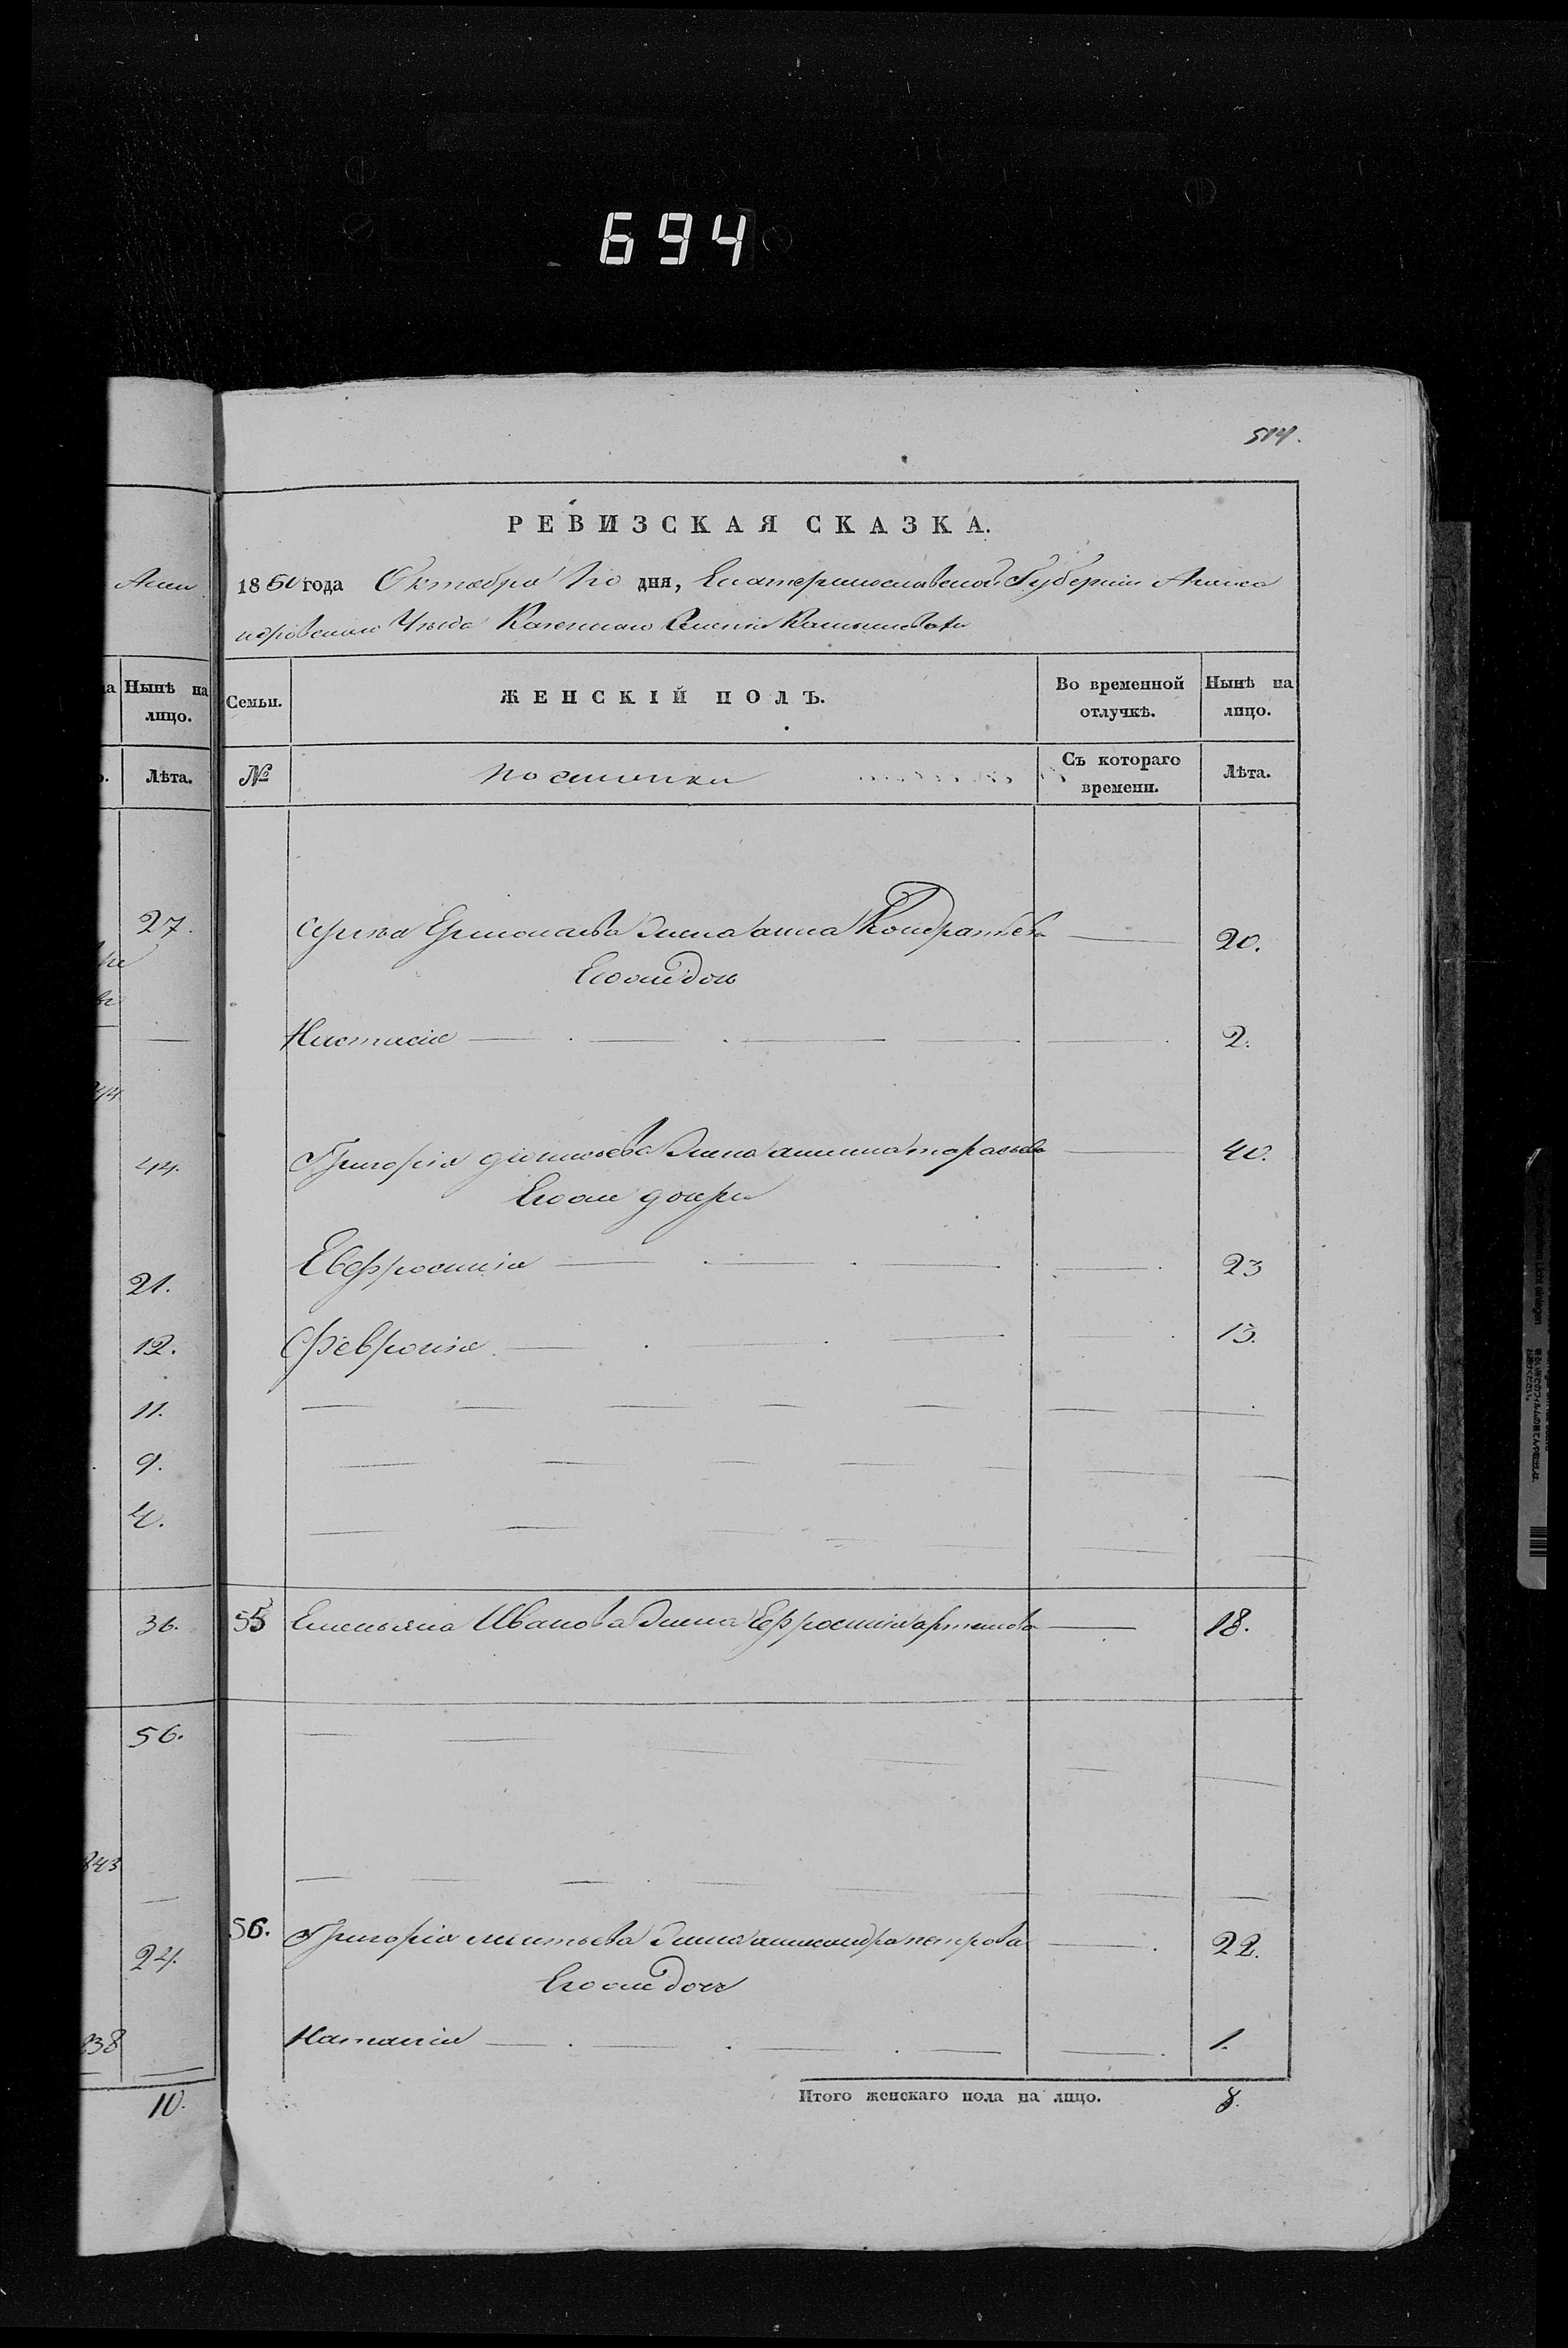 694
514.
РЕВИЗСКАЯ СКАЗКА.
1850 года Октября 10 дня, Екатеринославской Губернии Алекса
ндровскаго Уезда Казеннаго Селенія
Нынѣ на лицо.
Лѣта.
Семьи.
ЖЕНСКІЙ ПОЛЪ.
Во временной отлучкѣ.
Нынѣ на лицо.
№
Съ котораго времени.
Лѣта.
27.
Сергѣя жена анна Кондратьева 20.
Его дочь
Настасія 2.
44.
Григорія жена 40.
Его дочери
21.
Евфросинія 23
12.
Февронія 13.
11.
9.
4.
36.
55 Емельяна Иванова жена Ефросинія артемова 18.
56.
843
56. Григорія жена александра петрова 22.
24.
Его дочь
838
Наталія 1.
10.
Итого женскаго пола на лицо. 8.